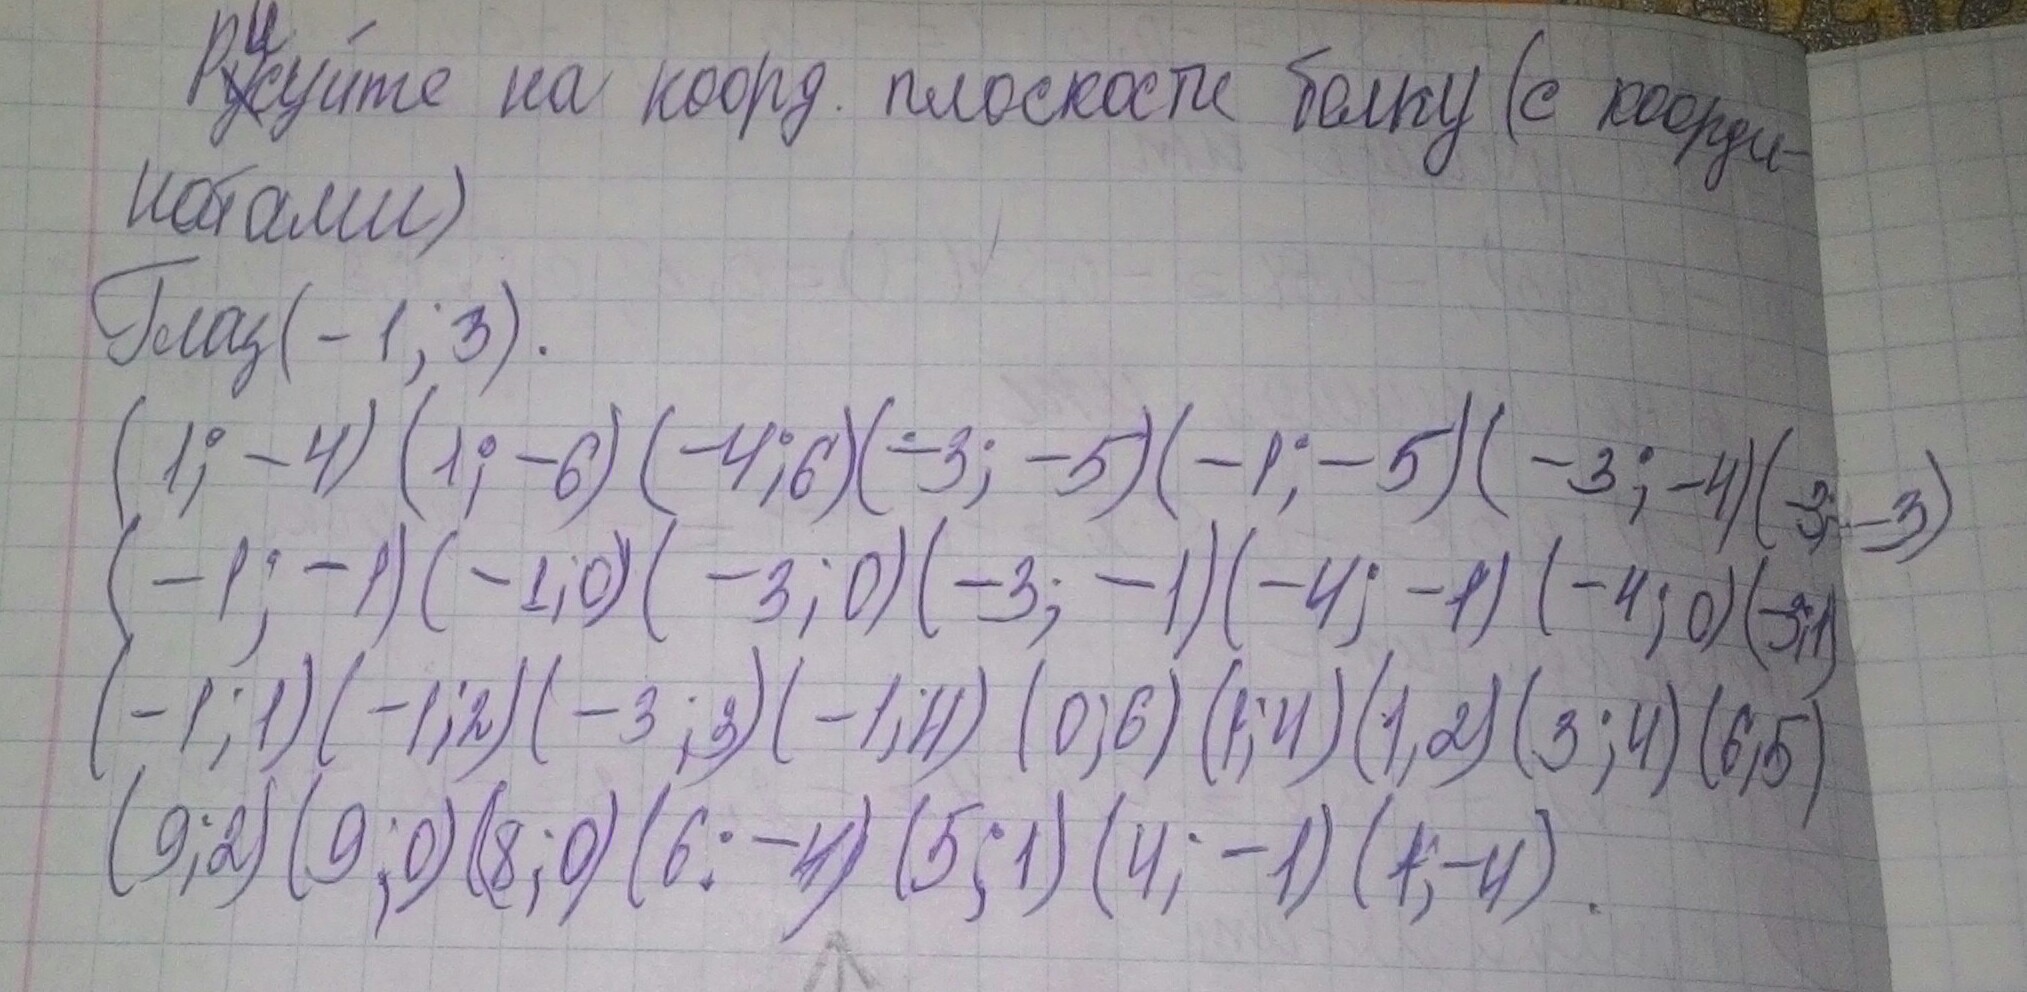 Рисуйте на коорд. плоскости белку (с коорди-
натами)
Глаз (-1; 3).
(1; -4) (1; -6) (-4; 6) (-3; -5) (-1; -5) (-3; -4) (-3; -3)
(-1; -1) (-1; 0) (-3; 0) (-3; -1) (-4; -1) (-4; 0) (-3; 1)
(-1; 1) (-1; 2) (-3; 3) (-1; 4) (0; 6) (1; 4) (1, 2) (3; 4) (6; 5)
(9; 2) (9; 0) (8; 0) (6: -4) (5; 1) (4; -1) (1; -4).